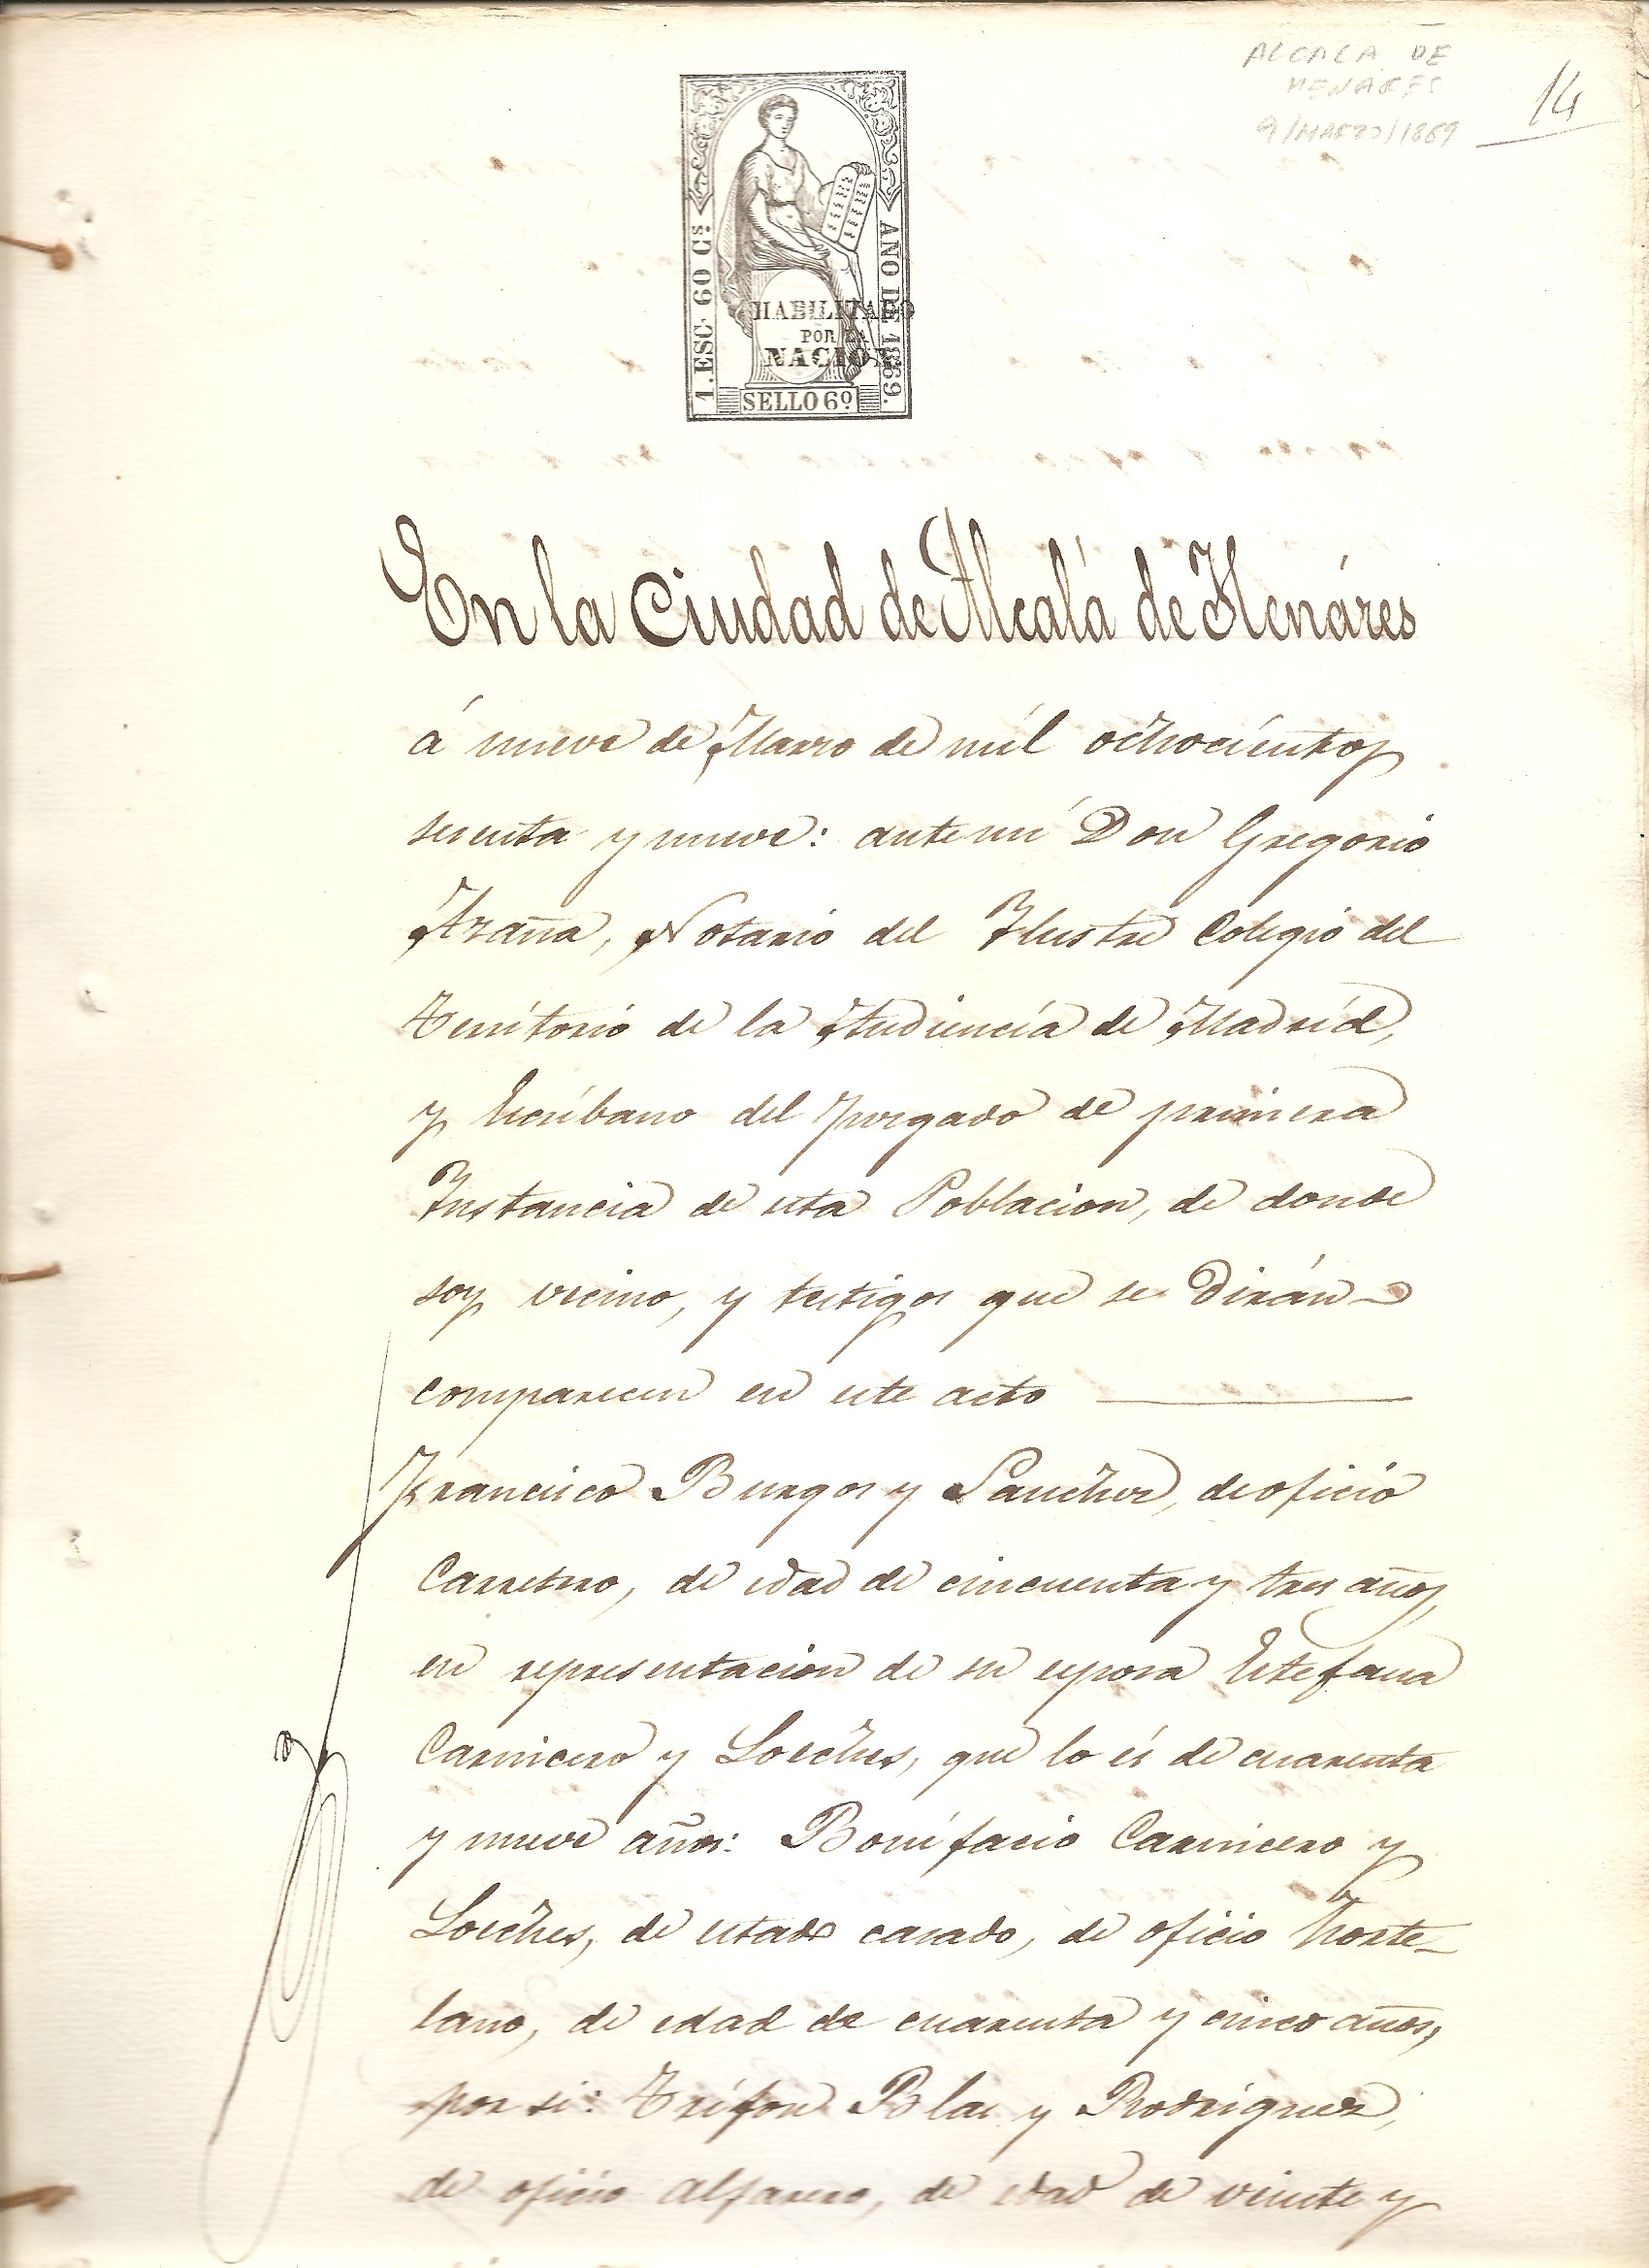 ALCALA DE
HENARES
9/MARZO/1869
14
1. ESC. 60 Cs.
AÑO DE 1869.
HABILITADO
POR LA
NACION
SELLO 6º
En la Ciudad de Alcalá de Henáres
á nueve de Marzo de mil ochocientos
sesenta y nueve: ante mí Don Gregorio
Azaña, Notario del Ilustre Colegio del
Territorio de la Audiencia de Madrid,
y Escribano del Juzgado de primera
Instancia de esta Poblacion, de donde
soy vecino, y testigos que se dirán
comparecen en este acto
Francisco Burgos y Sanchez, de oficio
Carretero, de edad de cincuenta y tres años,
en representacion de su esposa Estefana
Carnicero y Loeches, que lo és de cuarenta
y nueve años: Bonifacio Carnicero y
Loeches, de estado casado, de oficio horte-
lano, de edad de cuarenta y cinco años,
por si: Trífon Blas y Rodriguez,
de oficio alfarero, de edad de veinte y